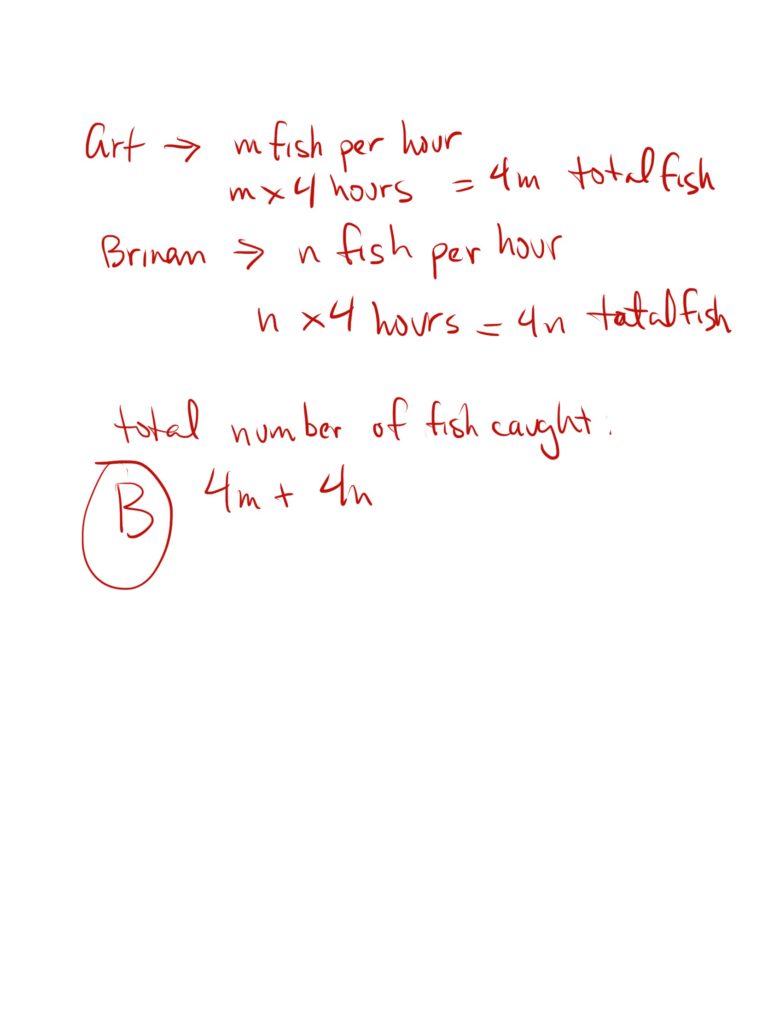 Art → m fish per hour
m x 4 hours = 4m total fish
Brinan → n fish per hour
n x 4 hours = 4n total fish
total number of fish caught:
B 4m + 4n